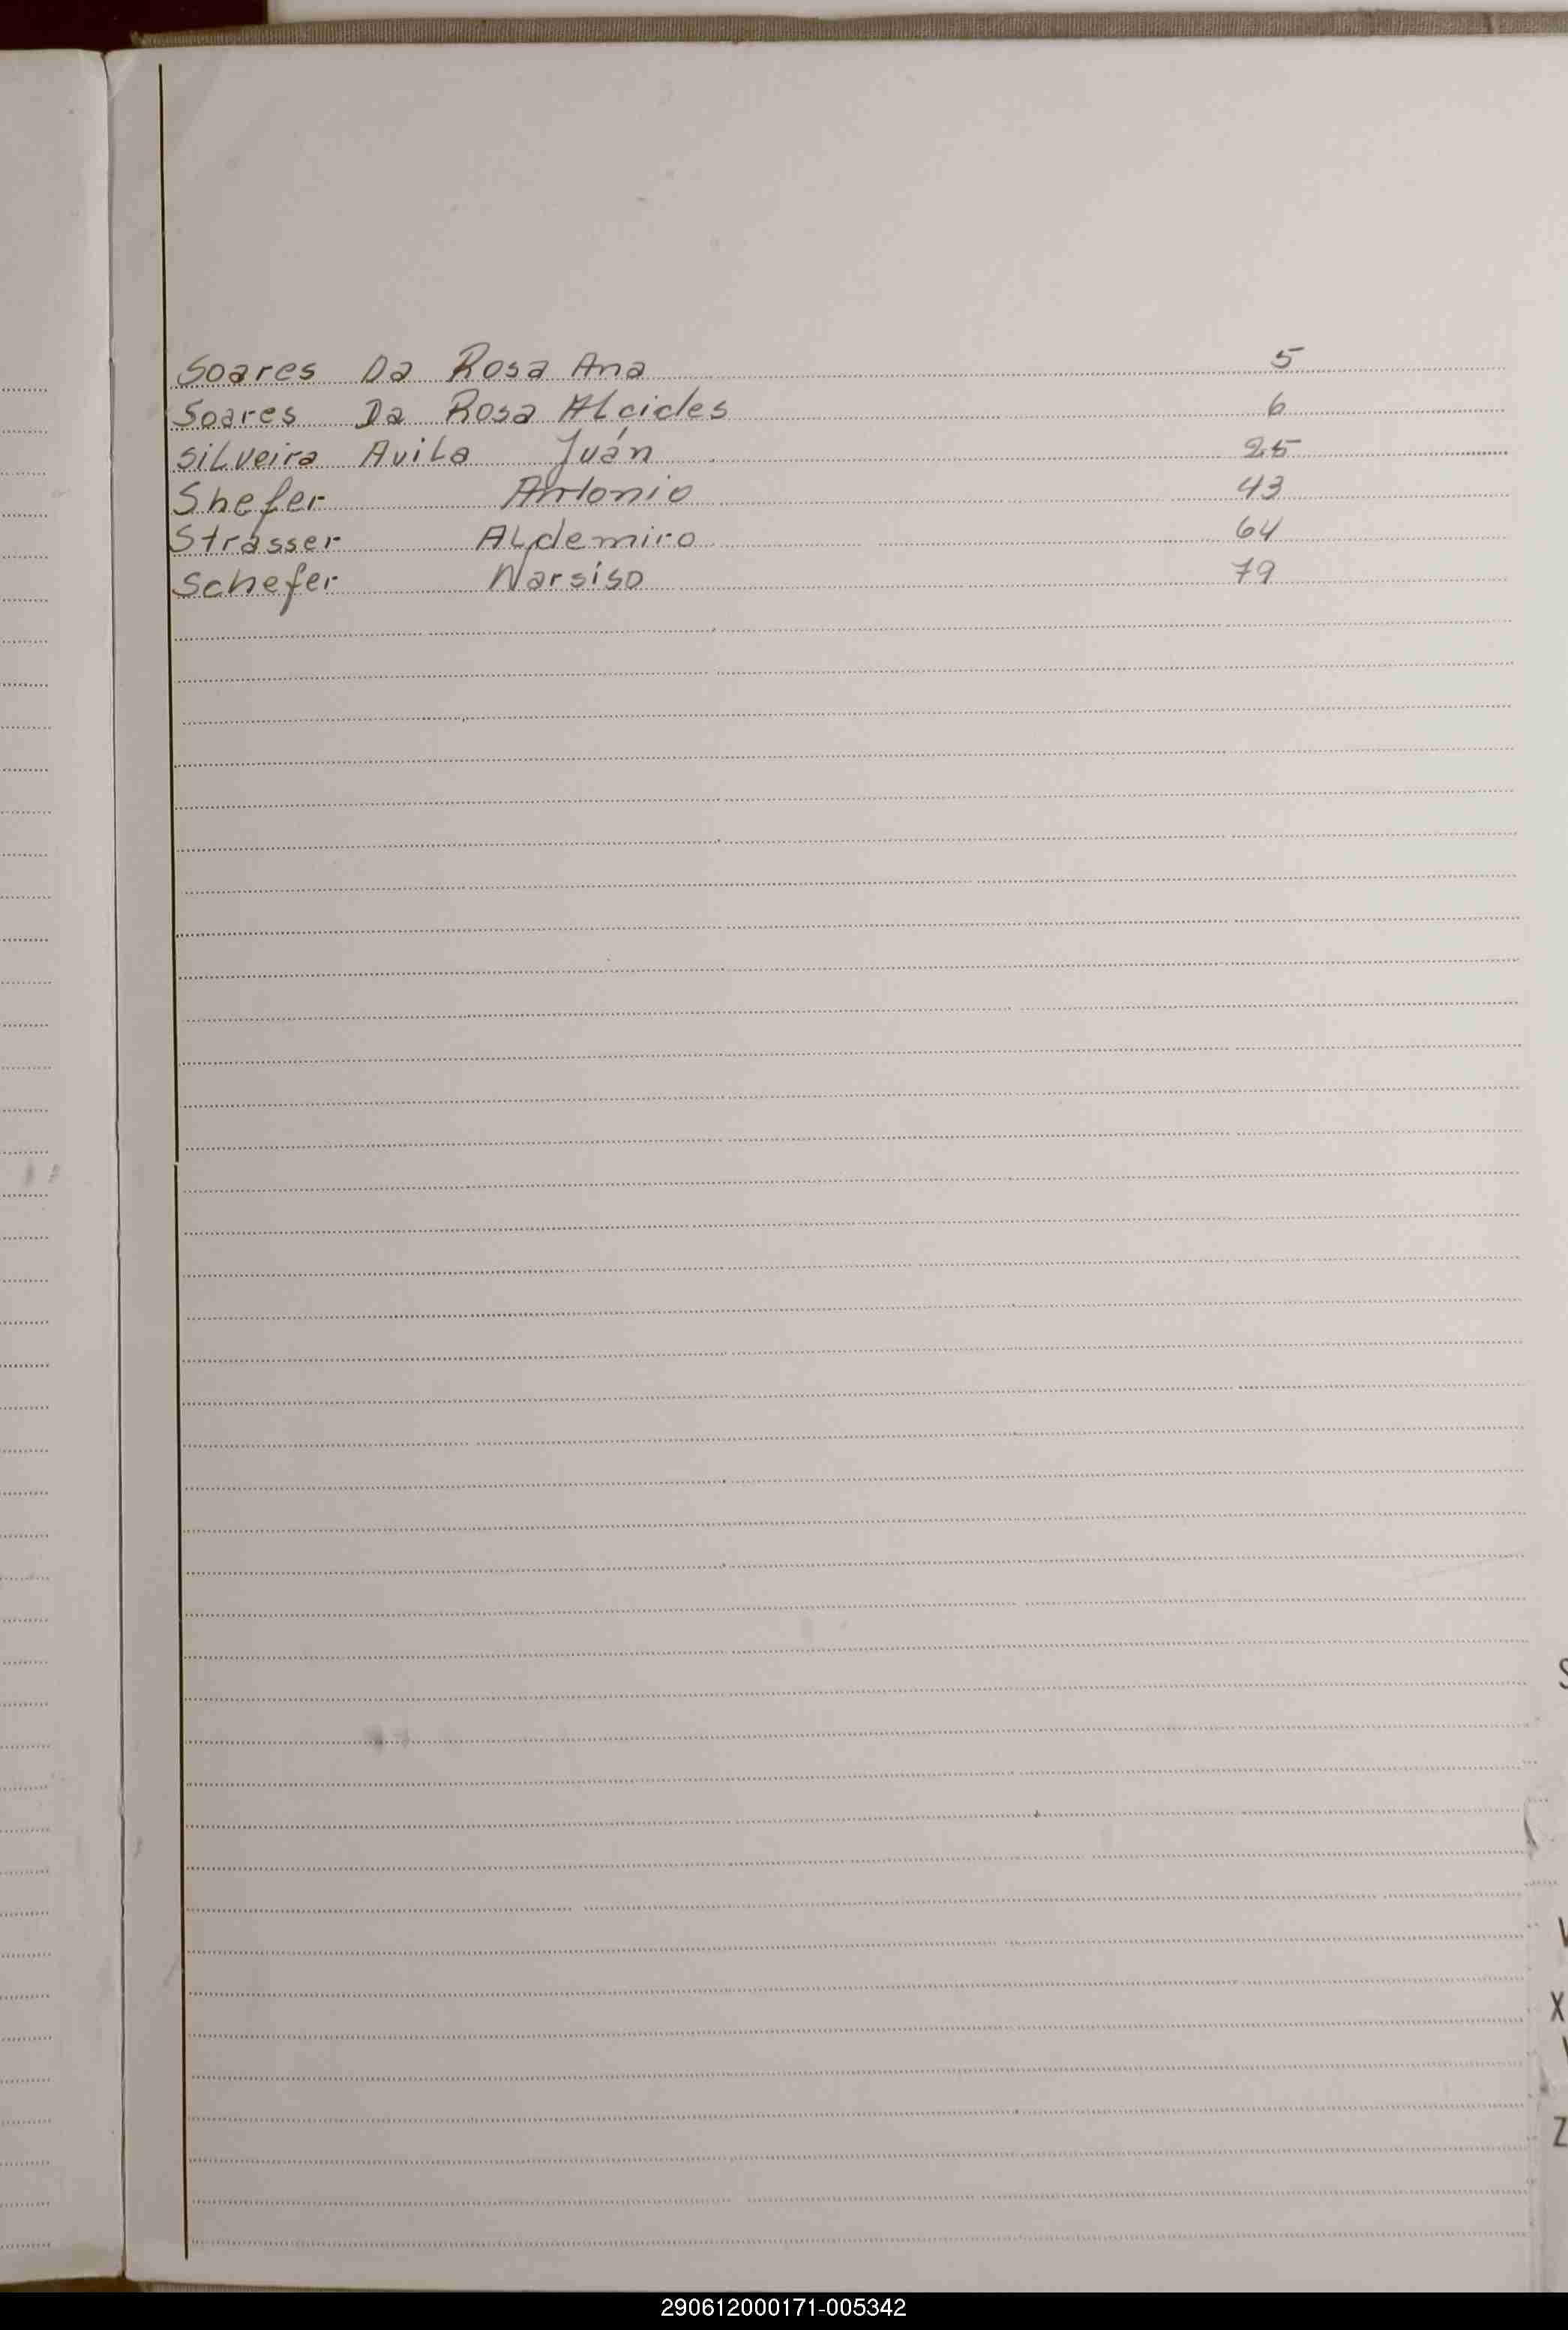 Soares Da Rosa Ana 5
Soares Da Rosa ALcides 6
SiLveira AviLa Juán 25
Shefer Antonio 43
Strasser ALdemiro 64
Schefer Narsiso 79
S
X
Z
290612000171-005342